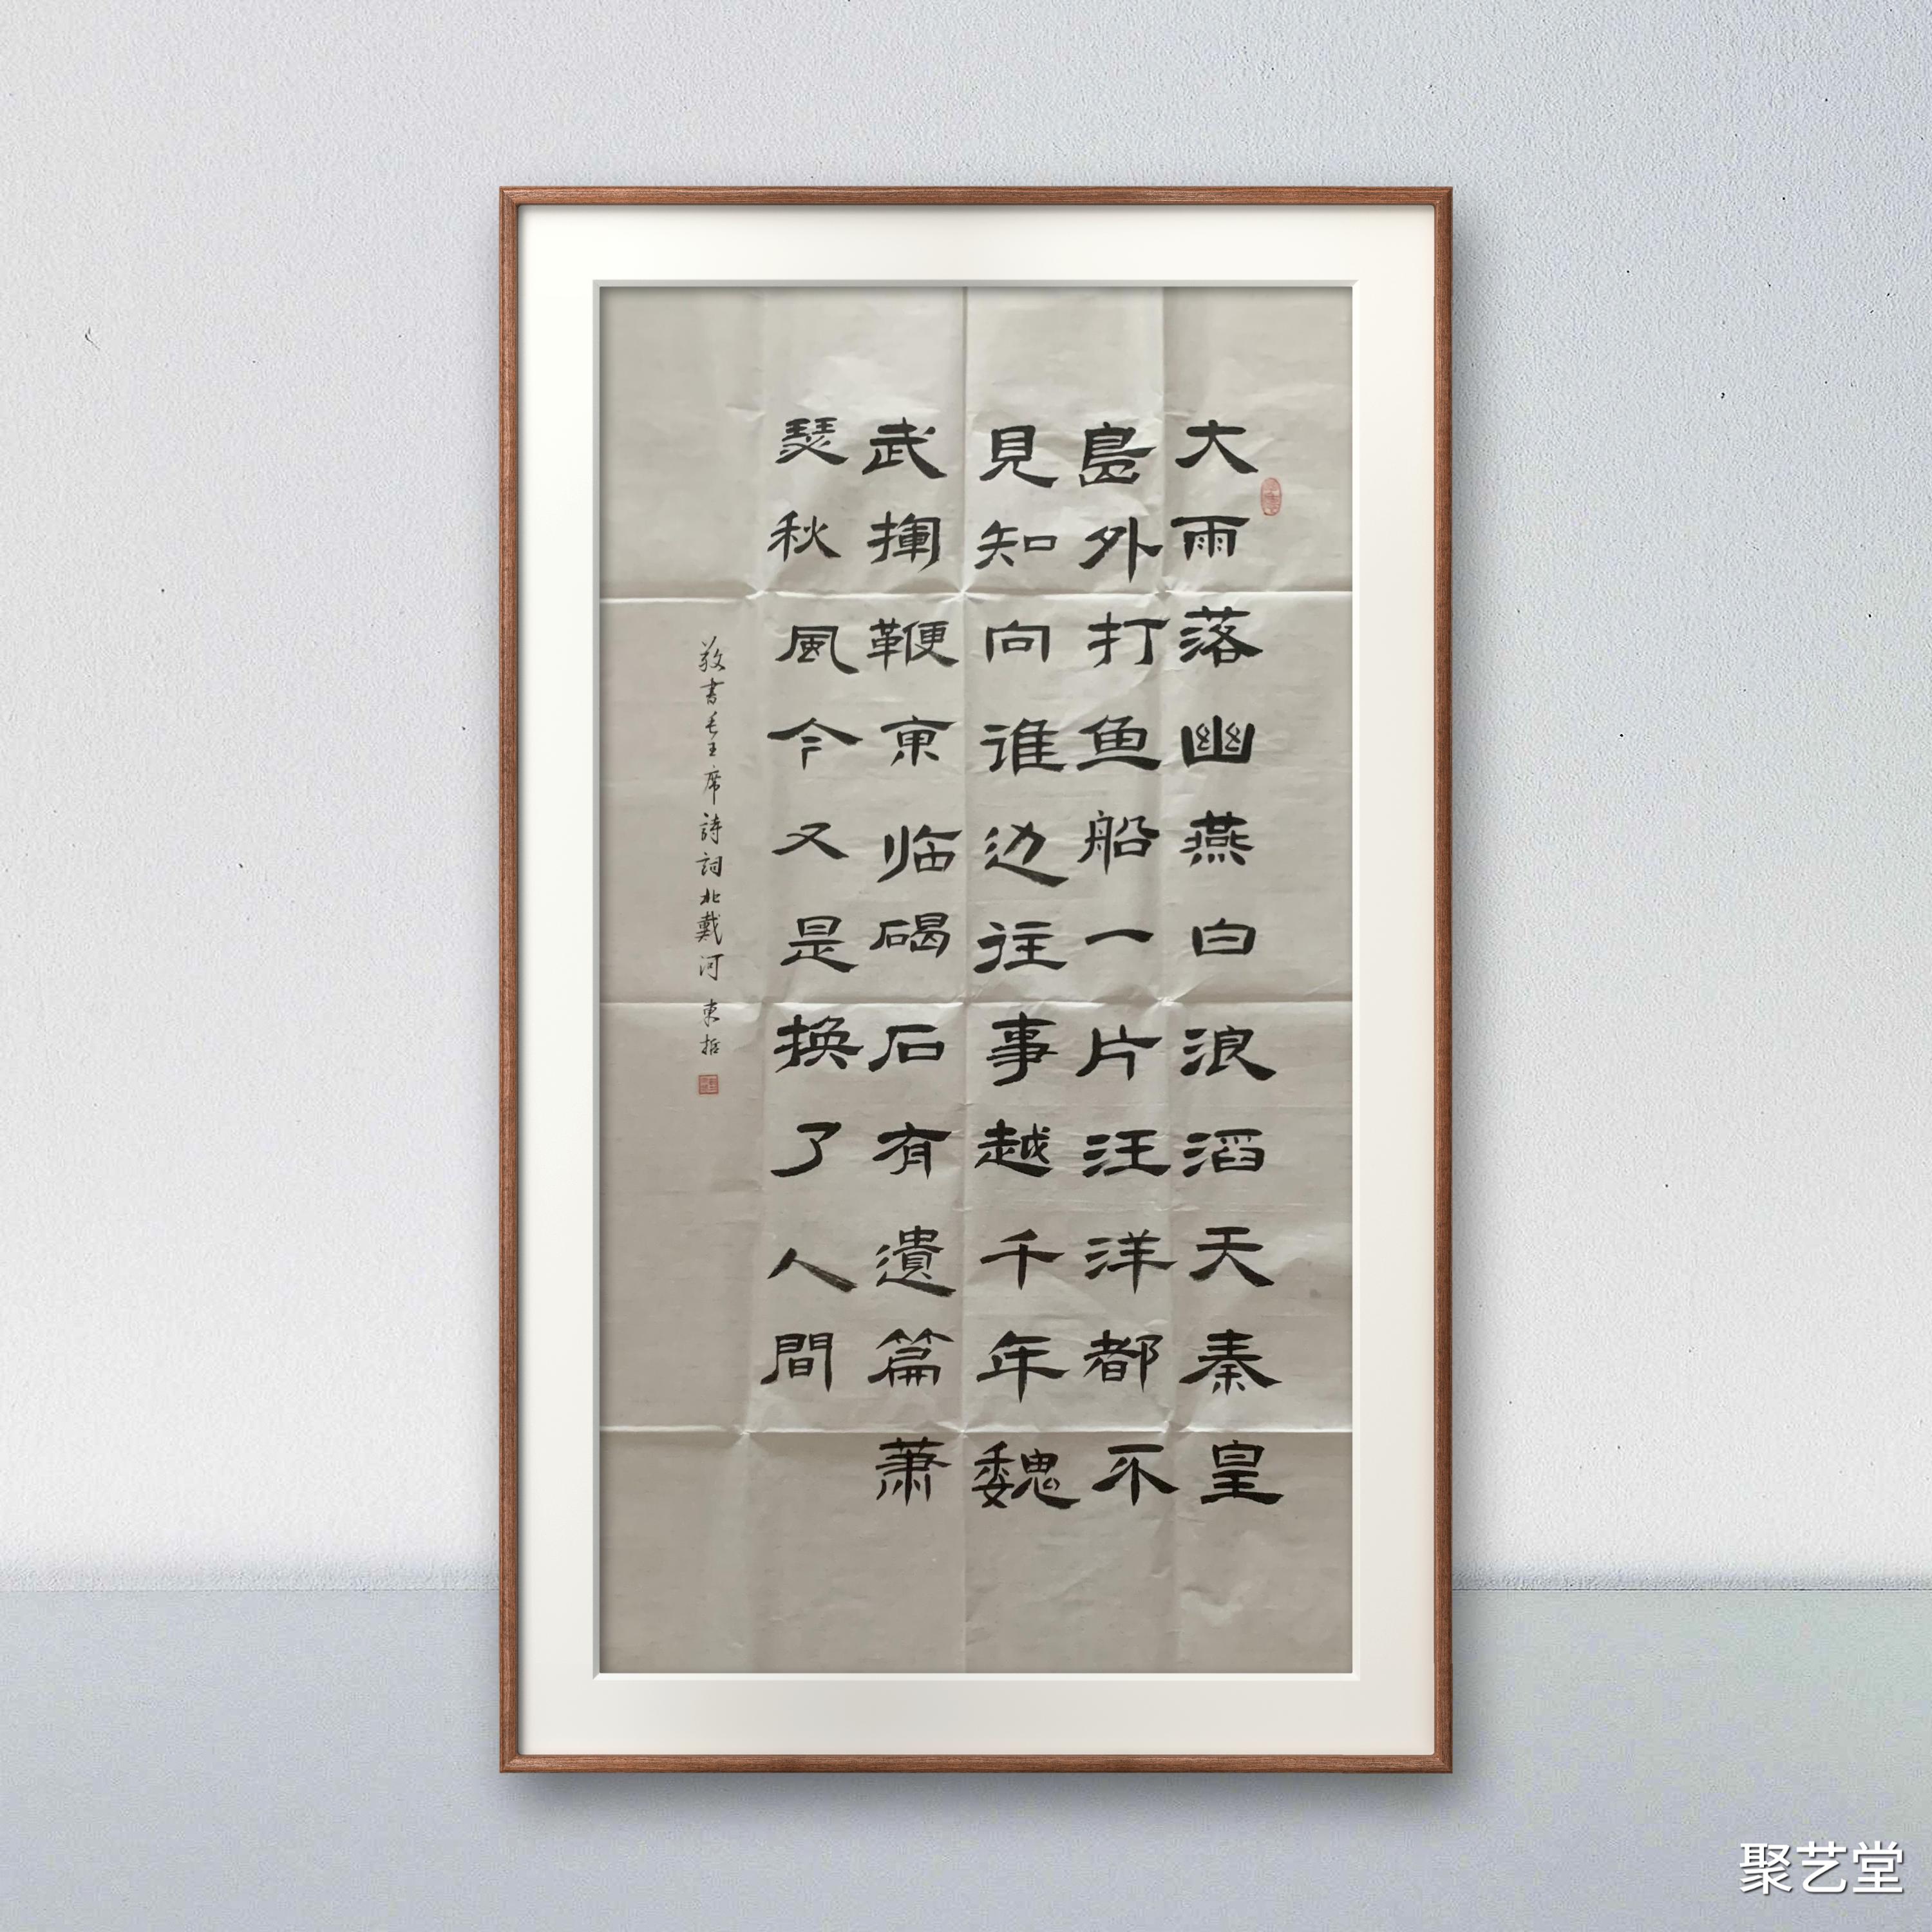 大雨落幽燕白浪滔天秦皇
島外打鱼船一片汪洋都不
見知向谁边往事越千年魏
武揮鞭東临碣石有遺篇萧
瑟秋風今又是换了人間
敬書毛主席詩詞北戴河 東哲
聚艺堂